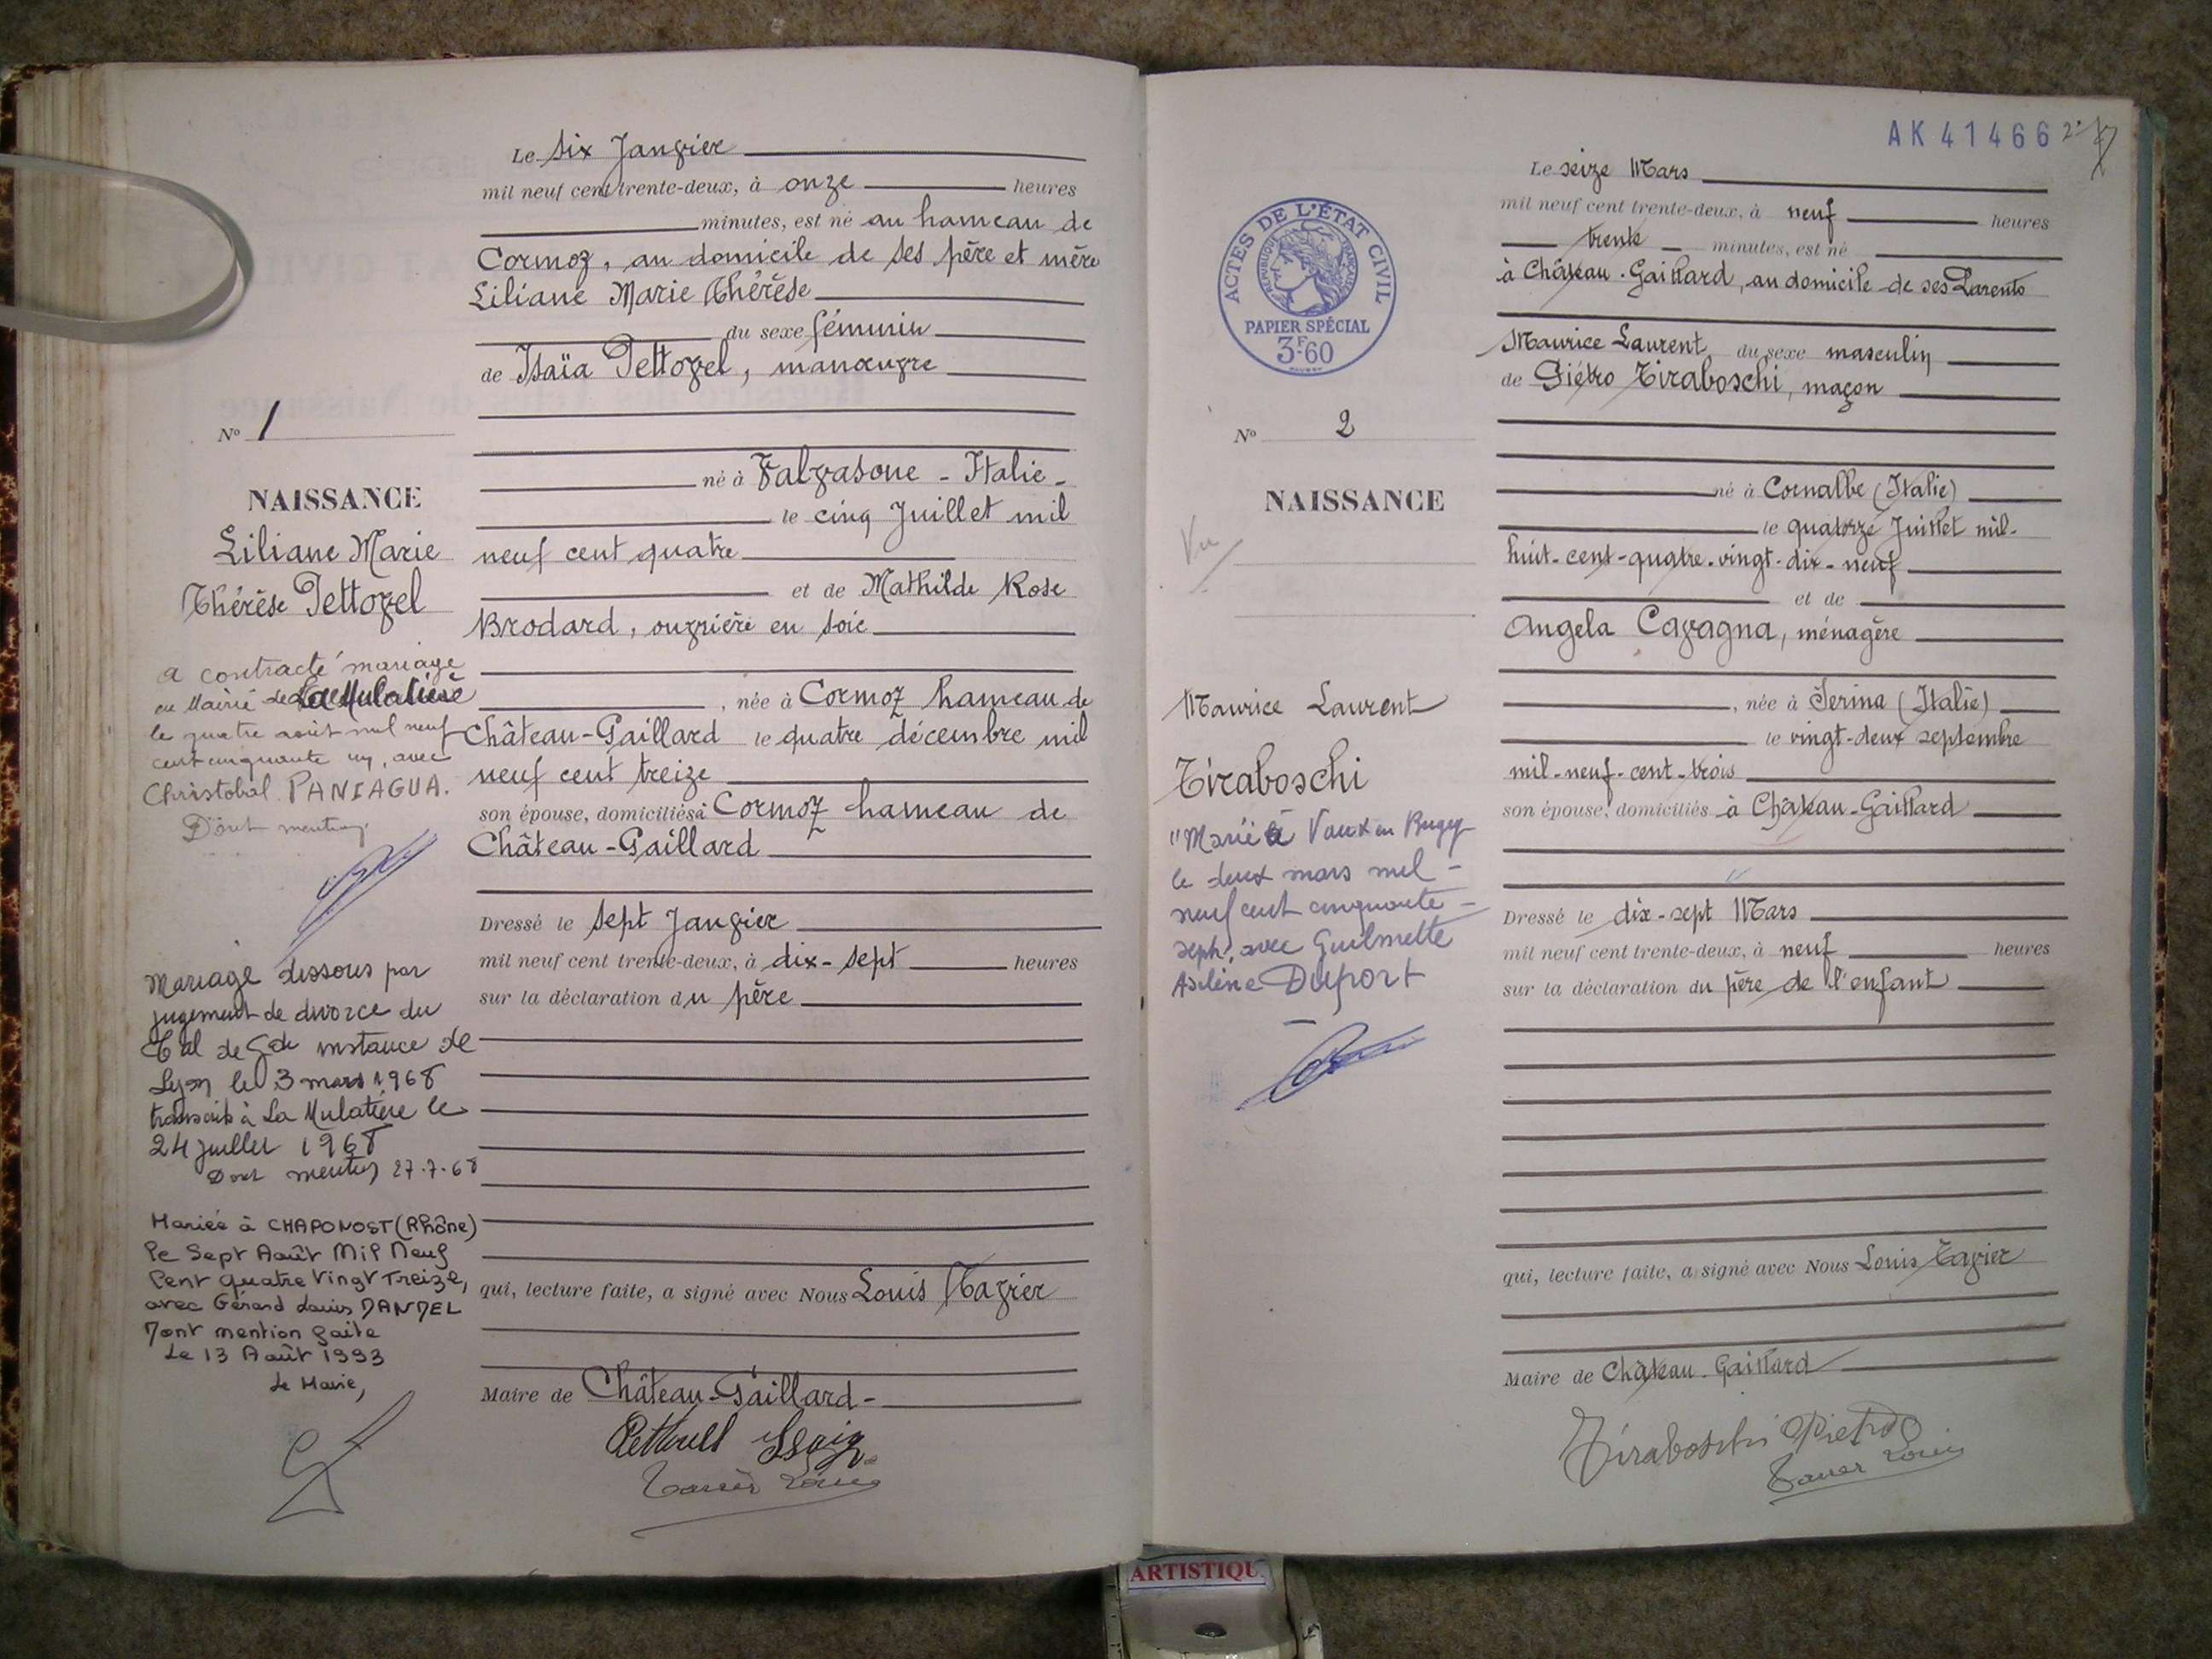 Le six Janvier
mil neuf cent trente-deux, à onze heures
minutes, est né au hameau de
Cormoz, au domicile de ses père et mère
Liliane Marie Thérèse
du sexe féminin
de Isaïa Pettovel, manœuvre
né à Valvasone - Italie -
le cinq Juillet mil
neuf cent quatre
et de Mathilde Rose
Brodard, ouvrière en soie
, née à Cormoz hameau de
Château-Gaillard le quatre décembre mil
neuf cent treize
son épouse, domiciliés à Cormoz hameau de
Château-Gaillard
Dressé le sept Janvier
mil neuf cent trente-deux, à dix-sept heures
sur la déclaration du père
qui, lecture faite, a signé avec Nous Louis Tavier
Maire de Château-Gaillard -
Pettovel Isaia
Tavier Louis
N° 1
NAISSANCE
Liliane Marie
Thérèse Pettovel
a contracté mariage
en Mairie de La Mulatière
le quatre août mil neuf
cent cinquante un, avec
Christobal PANIAGUA.
Dont mention
Mariage dissous par
jugement de divorce du
Tal de Gde instance de
Lyon le 3 mars 1968
transcrit à La Mulatière le
24 juillet 1968
Dont mention 27.7.68
Mariée à CHAPONOST (Rhône)
le Sept Août Mil Neuf
Cent Quatre Vingt Treize,
avec Gérard Louis DANDEL
Dont mention faite
Le 13 Août 1993
Le Maire,
AK 41466
ACTES DE L'ÉTAT CIVIL
RÉPUBLIQUE FRANÇAISE
PAPIER SPÉCIAL
3F60
N° 2
NAISSANCE
Vu
Maurice Laurent
Tiraboschi
"Marié à Vaux en Bugey
le deux mars mil -
neuf cent cinquante -
sept, avec Guilmette
Asline Duport
Le seize Mars
mil neuf cent trente-deux, à neuf heures
trente minutes, est né
à Château-Gaillard, au domicile de ses Parents
Maurice Laurent du sexe masculin
de Piétro Tiraboschi, maçon
né à Cornalbe (Italie)
le quatorze Juillet mil-
huit-cent-quatre-vingt-dix-neuf
et de
Angela Cavagna, ménagère
, née à Serina (Italie)
le vingt-deux septembre
mil-neuf-cent-trois
son épouse, domiciliés à Château-Gaillard
Dressé le dix-sept Mars
mil neuf cent trente-deux, à neuf heures
sur la déclaration du père de l'enfant
qui, lecture faite, a signé avec Nous Louis Tavier
Maire de Château-Gaillard
Tiraboschi Pietro
Tavier Louis
ARTISTIQU